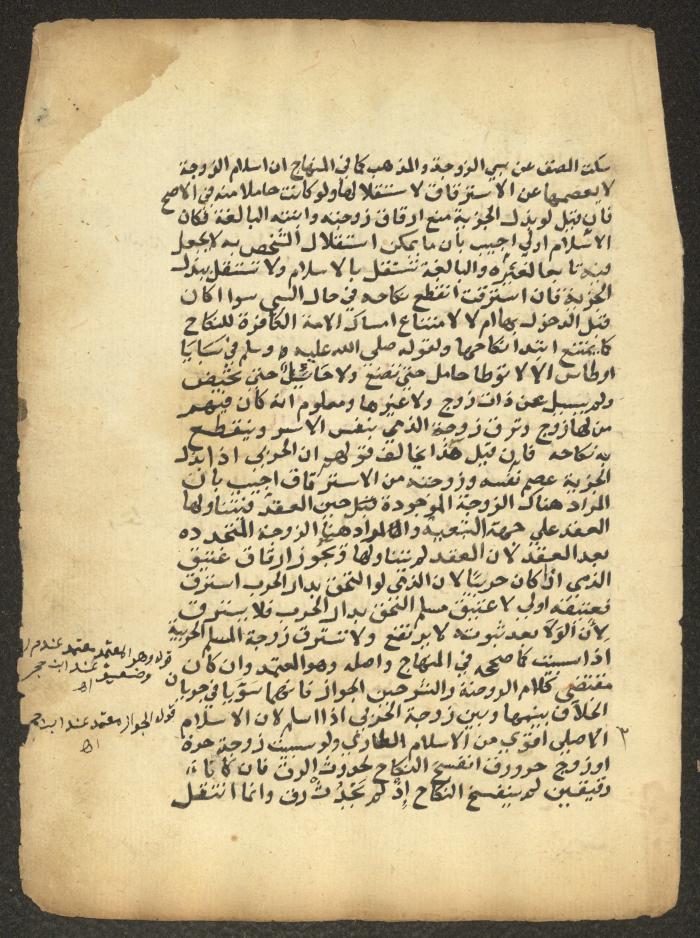 سكت المصنف عن سبي الزوجة والمذهب كما في المنهاج ان اسلام الزوجة
لا يعصمها عن الاسترقاق لاستقلالها ولو كانت حاملا منه في الاصح
فان قيل لو بذل الجزية منع ارقاق زوجته وابنته البالغة فكان
الاسلام اولي اجيب بان ما يمكن استقلال الشخص به لا يجعل
فيه تابعا لغيره والبالغة تستقل بالاسلام ولا تستقل ببذل
الجزية فان استرقت انقطع نكاحه في حال السبي سواا كان
قبل الدخول بها ام لا لامتناع امساك الامة الكافرة للنكاح
كما يمتنع ابتدا نكاحها ولقوله صلى الله عليه وسلم في سبايا
اوطاس الا لا توطا حامل حتي تضع ولا حائل حتي تحيض
ولم يسيل عن ذات زوج ولا غيرها ومعلوم انه كان فيهم
من لها زوج وترق زوجة الذمي بنفس الاسر وينقطع
به نكاحه فان قيل هذا يخالف قولهم ان الحربي اذا بذل
الجزية عصم نفسه وزوجته من الاسترقاق اجيب بان
المراد هناك الزوجة الموجودة حين العقد فيتناولها
العقد علي جهة التبعية والمراد هنا الزوجة المتجدده
بعد العقد لان العقد لم يتناولها ويجوز ارقاق عتيق
الذمي اذا كان حربيا لان الذمي لو التحق بدار الحرب استرق
فعتيقه اولي لا عتيق مسلم التحق بدار الحرب فلا يسترق
لان الولا بعد ثبوته لا يرتفع ولا تسترق زوجة المسلم الحربية
اذا سبيت كما صححه في المنهاج واصله وهو المعتمد وان كان
مقتضى كلام الروضة والشرحين الجواز فانهما سويا في جريان
الخلاف بينهما وبين زوجة الحربي اذا اسلم لان الاسلام
الاصلي اقوي من الاسلام الطاري ولو سبيت زوجة حرة
او زوج حر ورق انفسخ النكاح لحدوث الرق فان كانا
رقيقين لم ينفسخ النكاح اذ لم يحدث رق وانما انتقل
قوله وهو المعتمد معتمد عند م ر
وضعيف عند ابن حجر
اه
قوله الجواز معتمد عند ابن حجر
اه